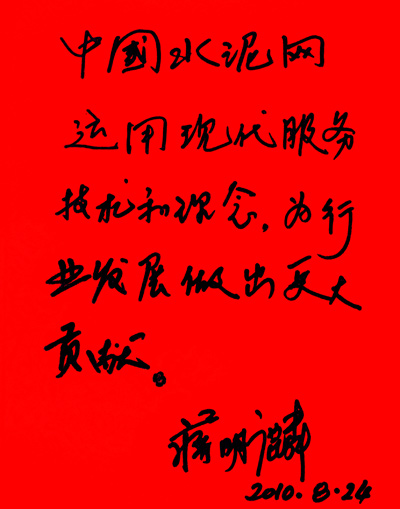 中國水泥网
运用现代服务
技术和理念，为行
业发展做出更大
贡献。
蒋明麟
2010.8.24